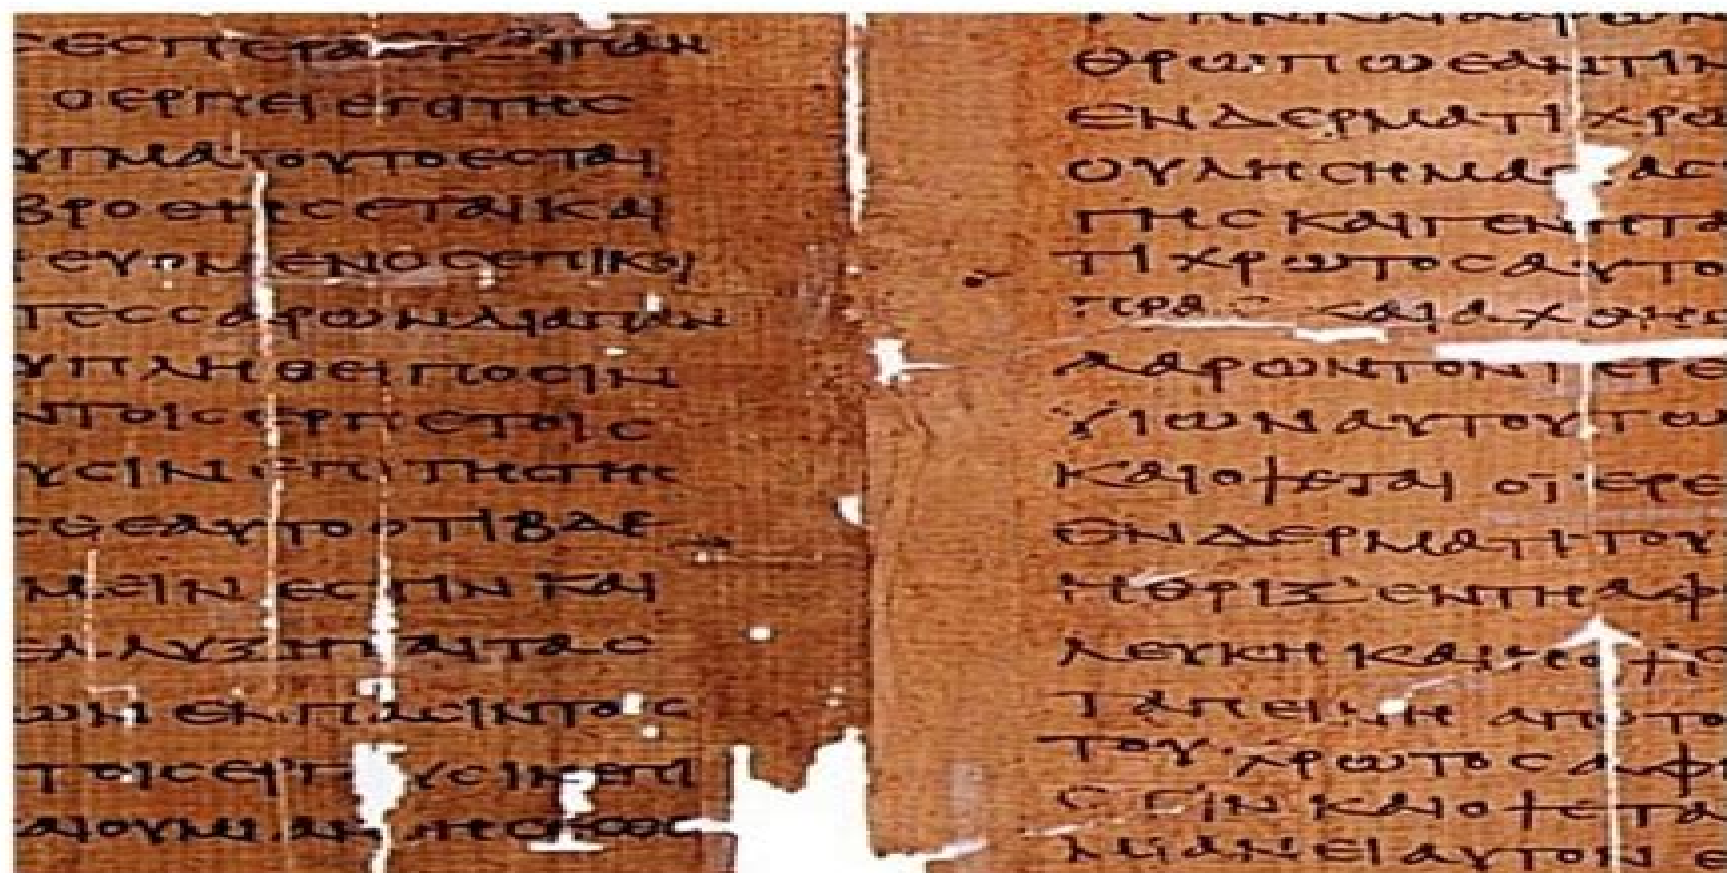 ϹΕϹΠΕΡΑϹΚ ΠΑΝ
ΟΕΡΠΕΙΕΠΙΤΗϹ
ΥΓΜΑΤΟΥΤΟΕϹΤΑΙ
ΒΡΟΘΗϹΕΤΑΙΚΑΙ
ΕΥΟΜΕΝΟϹΕΠΙΚΟΙ
ΤΕϹϹΑΡΩΝΔΙΑΠΑΝ
ΥΠΛΗΘΕΙΠΟϹΙΝ
ΝΤΟΙϹΕΡΠΕΤΟΙϹ
ΥϹΙΝΕΠΙΤΗϹΓΗϹ
ϹΘΕΑΥΤΟΟΤΙΒΔΕ
ΜΕΙΝΕϹΤΙΝΚΑΙ
ΕΛΥΞΗΤΑΙΤΑϹ
ΩΝΕΝΠΑϹΙΝΤΟΙϹ
ΤΟΙϹΕΡΠΥϹΙΝΕΠΙ
ΑΙΟΥΜΙΑΝ
ΘΡΩΠΩΕΑΝΤΙΝ
ΕΝΔΕΡΜΑΤΙΧΡΩ
ΟΥΛΗϹΗΜΑϹΙΑϹ
ΓΗϹΚΑΙΓΕΝΗΤΑ
ΤΙΧΡΩΤΟϹΑΥΤΟ
ΠΡΑϹΚΑΙΑΧΘΗϹ
ΑΑΡΩΝΤΟΝΙΕΡΕ
ΫΙΩΝΑΥΤΟΥΤΩ
ΚΑΙΟΨΕΤΑΙΟΪΕΡΕ
ΕΝΔΕΡΜΑΤΙΤΟΥ
ΗΘΡΙΞΕΝΤΗΑΦ
ΛΕΥΚΗΚΑΙΗΟΨΙϹ
ΤΑΠΕΙΝΗΑΠΟΤΟ
ΤΟΥΧΡΩΤΟϹΑΦ
ϹΤΙΝΚΑΙΟΨΕΤΑ
ΜΙΑΝΕΙΑΥΤΟΝΕ